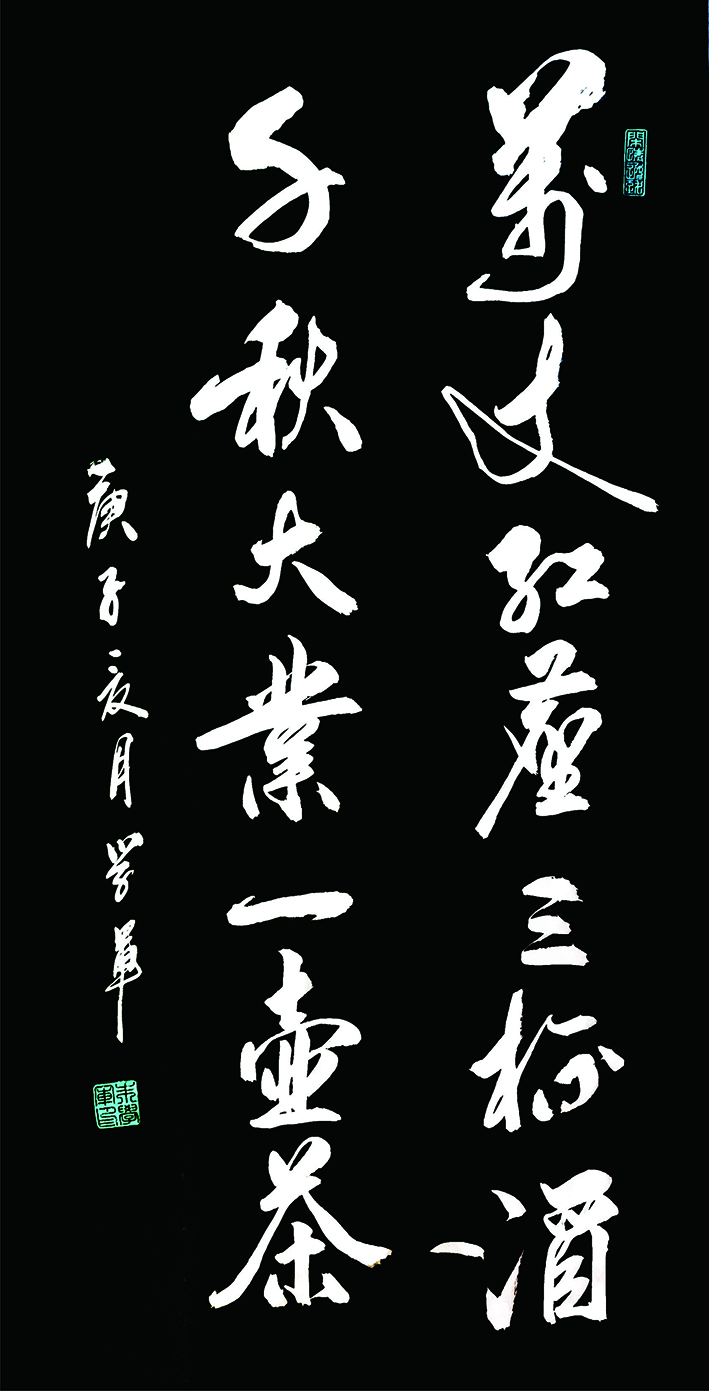 萬丈紅塵三杯酒
千秋大業一壺茶
庚子夏月學軍